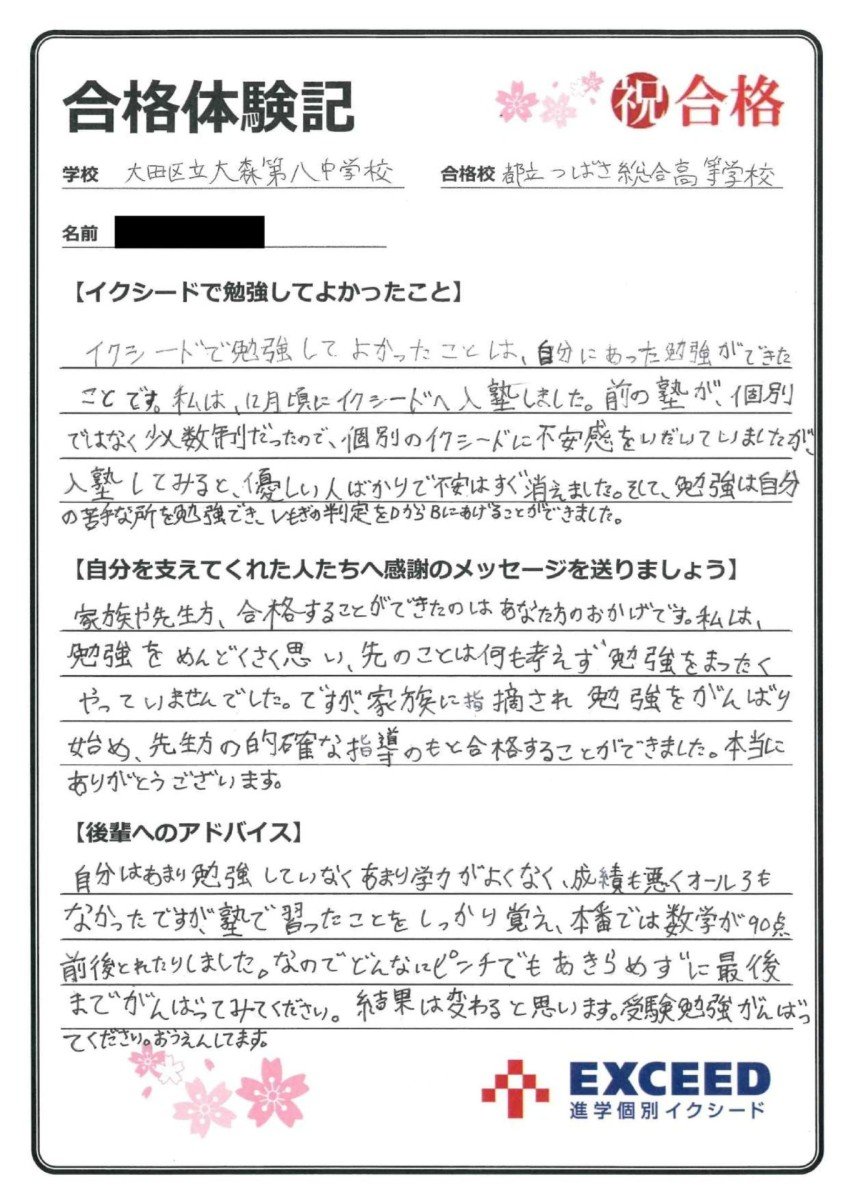 合格体験記
祝 合格
学校 大田区立大森第八中学校
合格校 都立つばさ総合高等学校
名前
【イクシードで勉強してよかったこと】
イクシードで勉強してよかったことは、自分にあった勉強ができた
ことです。私は、12月頃にイクシードへ入塾しました。前の塾が、個別
ではなく少人数制だったので、個別のイクシードに不安感をいだいていましたが、
入塾してみると、優しい人ばかりで不安はすぐ消えました。そして、勉強は自分
の苦手な所を勉強でき、Vもぎの判定をDからBにあげることができました。
【自分を支えてくれた人たちへ感謝のメッセージを送りましょう】
家族や先生方、合格することができたのはあなた方のおかげです。私は、
勉強をめんどくさく思い、先のことは何も考えず勉強をまったく
やっていませんでした。ですが、家族に指摘され勉強をがんばり
始め、先生方の的確な指導のもと合格することができました。本当に
ありがとうございます。
【後輩へのアドバイス】
自分はあまり勉強していなくあまり学力がよくなく、成績も悪くオール3も
なかったですが、塾で習ったことをしっかり覚え、本番では数学が90点
前後とれたりしました。なのでどんなにピンチでもあきらめずに最後
までがんばってみてください。結果は変わると思います。受験勉強がんばっ
てください。おうえんしてます。
EXCEED
進学個別イクシード